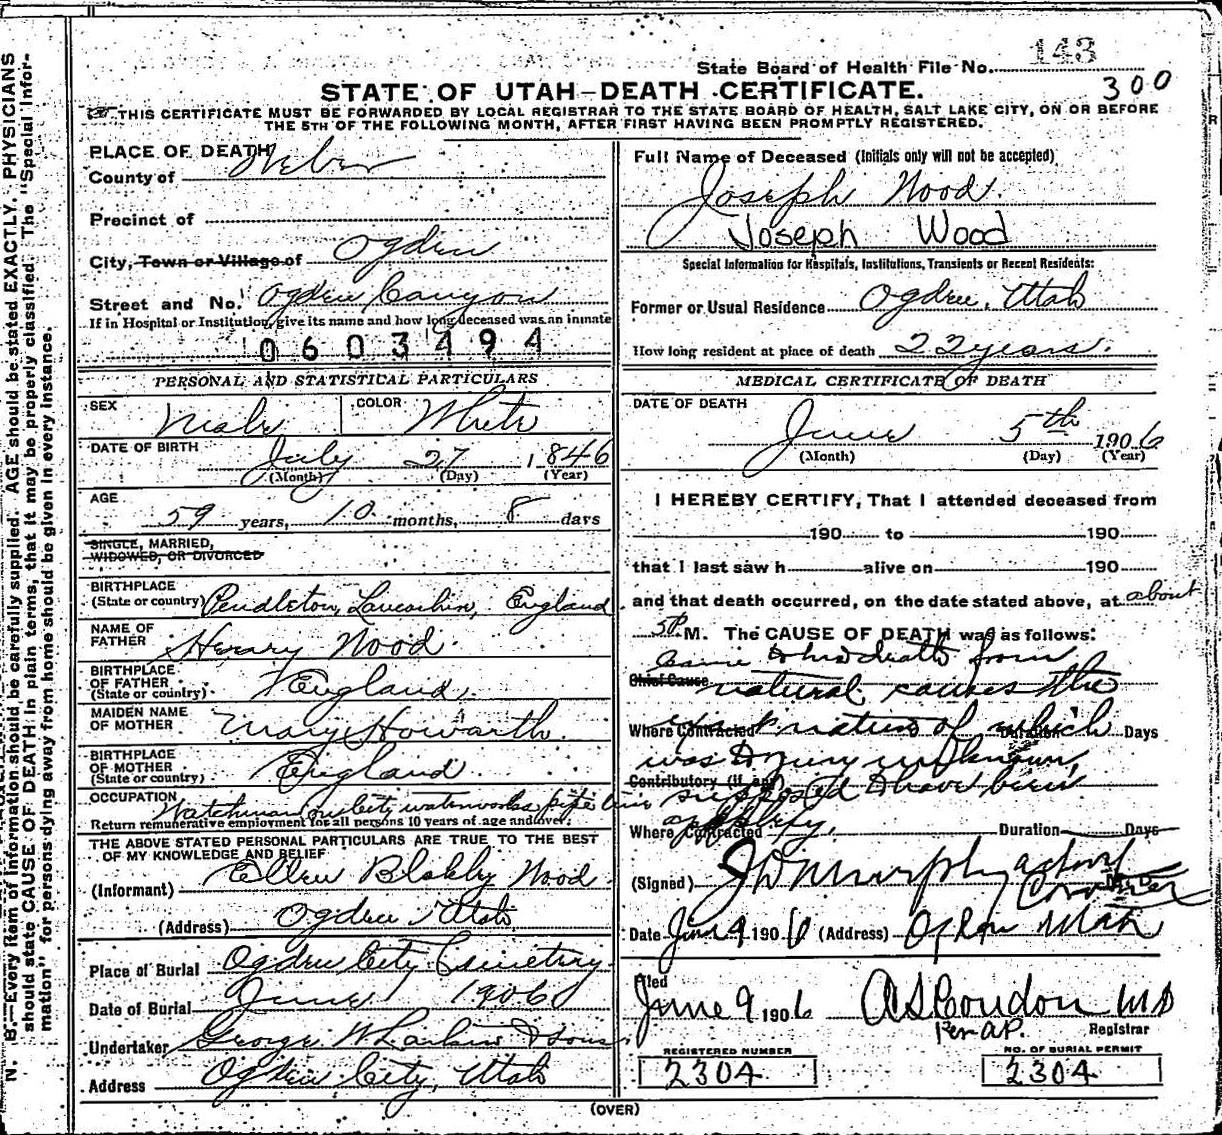 143
State Board of Health File No.
300
STATE OF UTAH—DEATH CERTIFICATE.
THIS CERTIFICATE MUST BE FORWARDED BY LOCAL REGISTRAR TO THE STATE BOARD OF HEALTH, SALT LAKE CITY, ON OR BEFORE
THE 5TH OF THE FOLLOWING MONTH, AFTER FIRST HAVING BEEN PROMPTLY REGISTERED.
N. B.—Every item of information should be carefully supplied. AGE should be stated EXACTLY. PHYSICIANS
should state CAUSE OF DEATH in plain terms, that it may be properly classified. The "Special Infor-
mation" for persons dying away from home should be given in every instance.
PLACE OF DEATH
County of Weber
Precinct of
City, Town or Village of Ogden
Street and No. Ogden Canyon
If in Hospital or Institution, give its name and how long deceased was an inmate
0603494
PERSONAL AND STATISTICAL PARTICULARS
SEX Male COLOR White
DATE OF BIRTH July 27 1846
(Month) (Day) (Year)
AGE 59 years, 10 months, 8 days
SINGLE, MARRIED,
WIDOWED, OR DIVORCED
BIRTHPLACE
(State or country) Pendleton, Lancashire, England
NAME OF
FATHER Henry Wood.
BIRTHPLACE
OF FATHER
(State or country) England.
MAIDEN NAME
OF MOTHER Mary Howarth.
BIRTHPLACE
OF MOTHER
(State or country) England.
OCCUPATION Watchman on City waterworks pipe line
Return remunerative employment for all persons 10 years of age and over.
THE ABOVE STATED PERSONAL PARTICULARS ARE TRUE TO THE BEST
OF MY KNOWLEDGE AND BELIEF
(Informant) Ellen Wood.
(Address) Ogden Utah
Place of Burial Ogden City Cemetery.
Date of Burial June 1906
Undertaker George W Larkin & Sons.
Address Ogden City, Utah
Full Name of Deceased (Initials only will not be accepted)
Joseph Wood.
Joseph Wood
Special Information for Hospitals, Institutions, Transients or Recent Residents:
Former or Usual Residence Ogden, Utah
How long resident at place of death 22 years.
MEDICAL CERTIFICATE OF DEATH
DATE OF DEATH
June 5th 1906
(Month) (Day) (Year)
I HEREBY CERTIFY, That I attended deceased from
190 to 190
that I last saw h alive on 190
and that death occurred, on the date stated above, at about
5P. M. The CAUSE OF DEATH was as follows:
Came to his death from
Chief Cause natural causes the
Where Contracted exact nature of which Duration Days
was to jury unknown,
Contributory (if any) supposed to have been
apoplexy,
Where Contracted Duration Days
(Signed) J D Murphy acting
Coroner M. D.
Date June 9 190 (Address) Ogden Utah
Filed
June 9 1906 A S Condon MD
Per A.P. Registrar
REGISTERED NUMBER
2304
NO. OF BURIAL PERMIT
2304
(OVER)